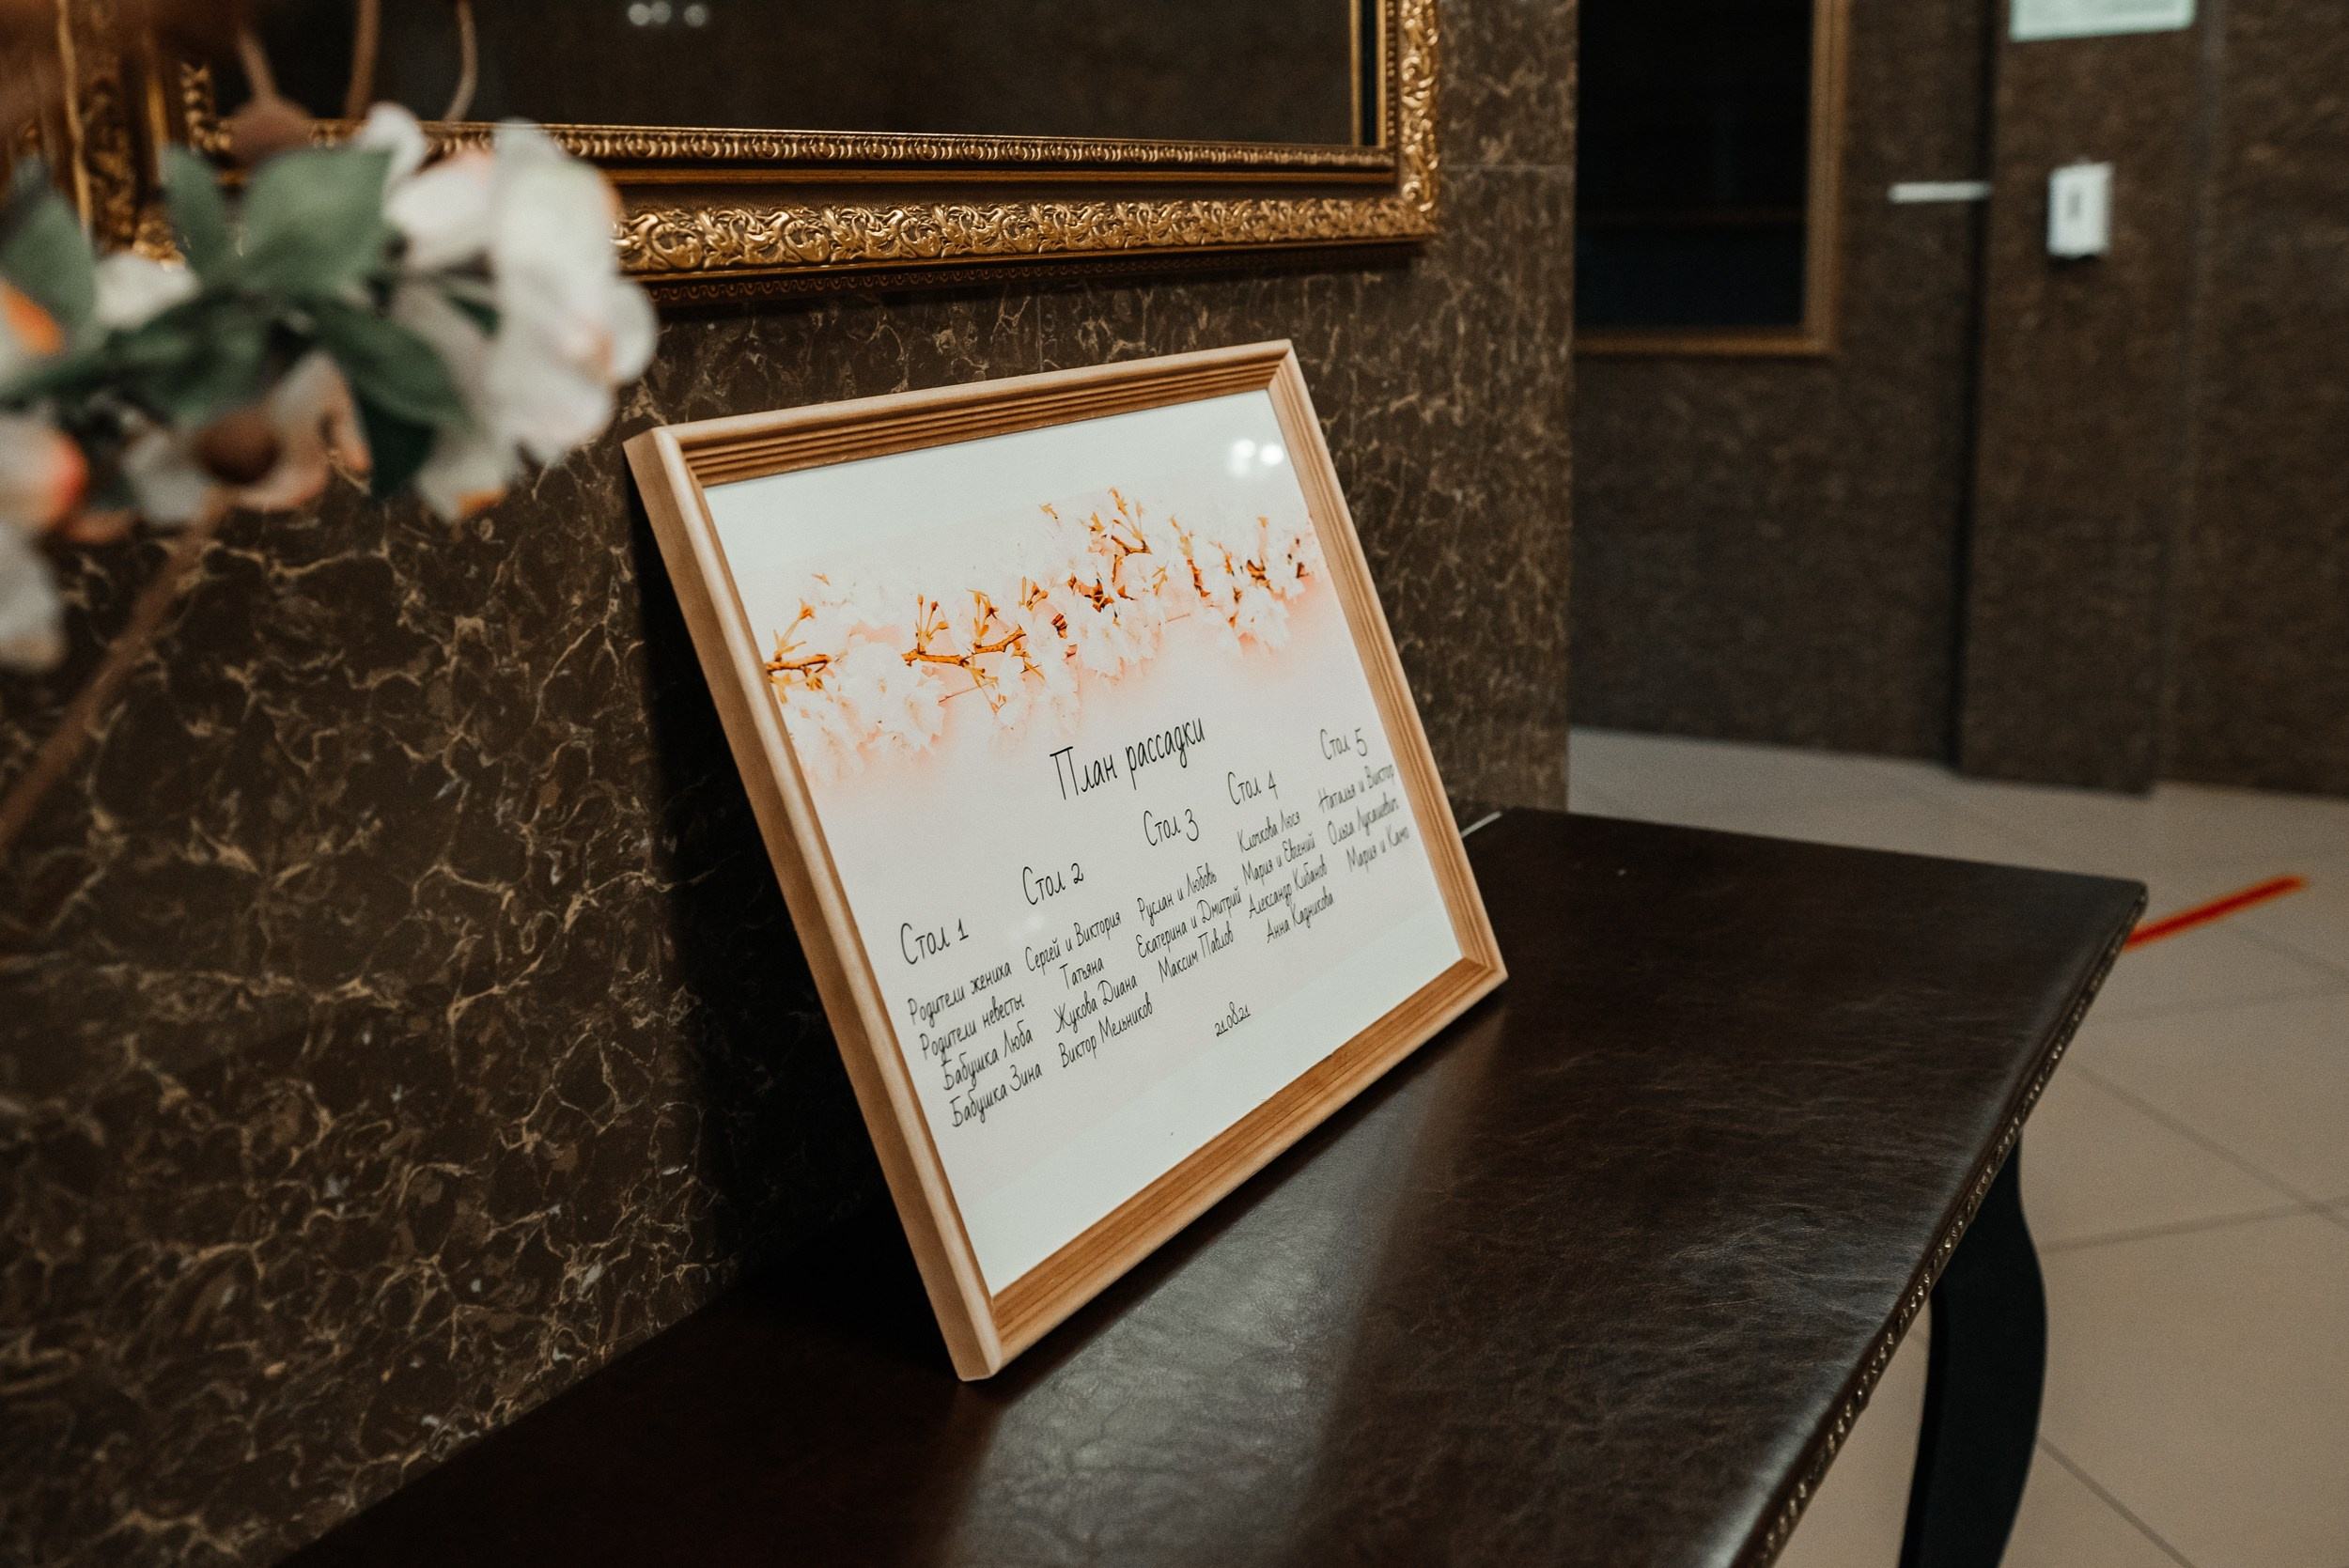 План рассадки
Стол 1
Родители жениха
Родители невесты
Бабушка Люба
Бабушка Зина
Стол 2
Сергей и Виктория
Татьяна
Жукова Диана
Виктор Мельников
Стол 3
Руслан и Любовь
Екатерина и Дмитрий
Максим Павлов
Стол 4
Клочкова Люся
Мария и Евгений
Александр Кибанов
Анна Кадникова
Стол 5
Наталья и Виктор
Ольга Лукашевич
Мария и
21.08.21